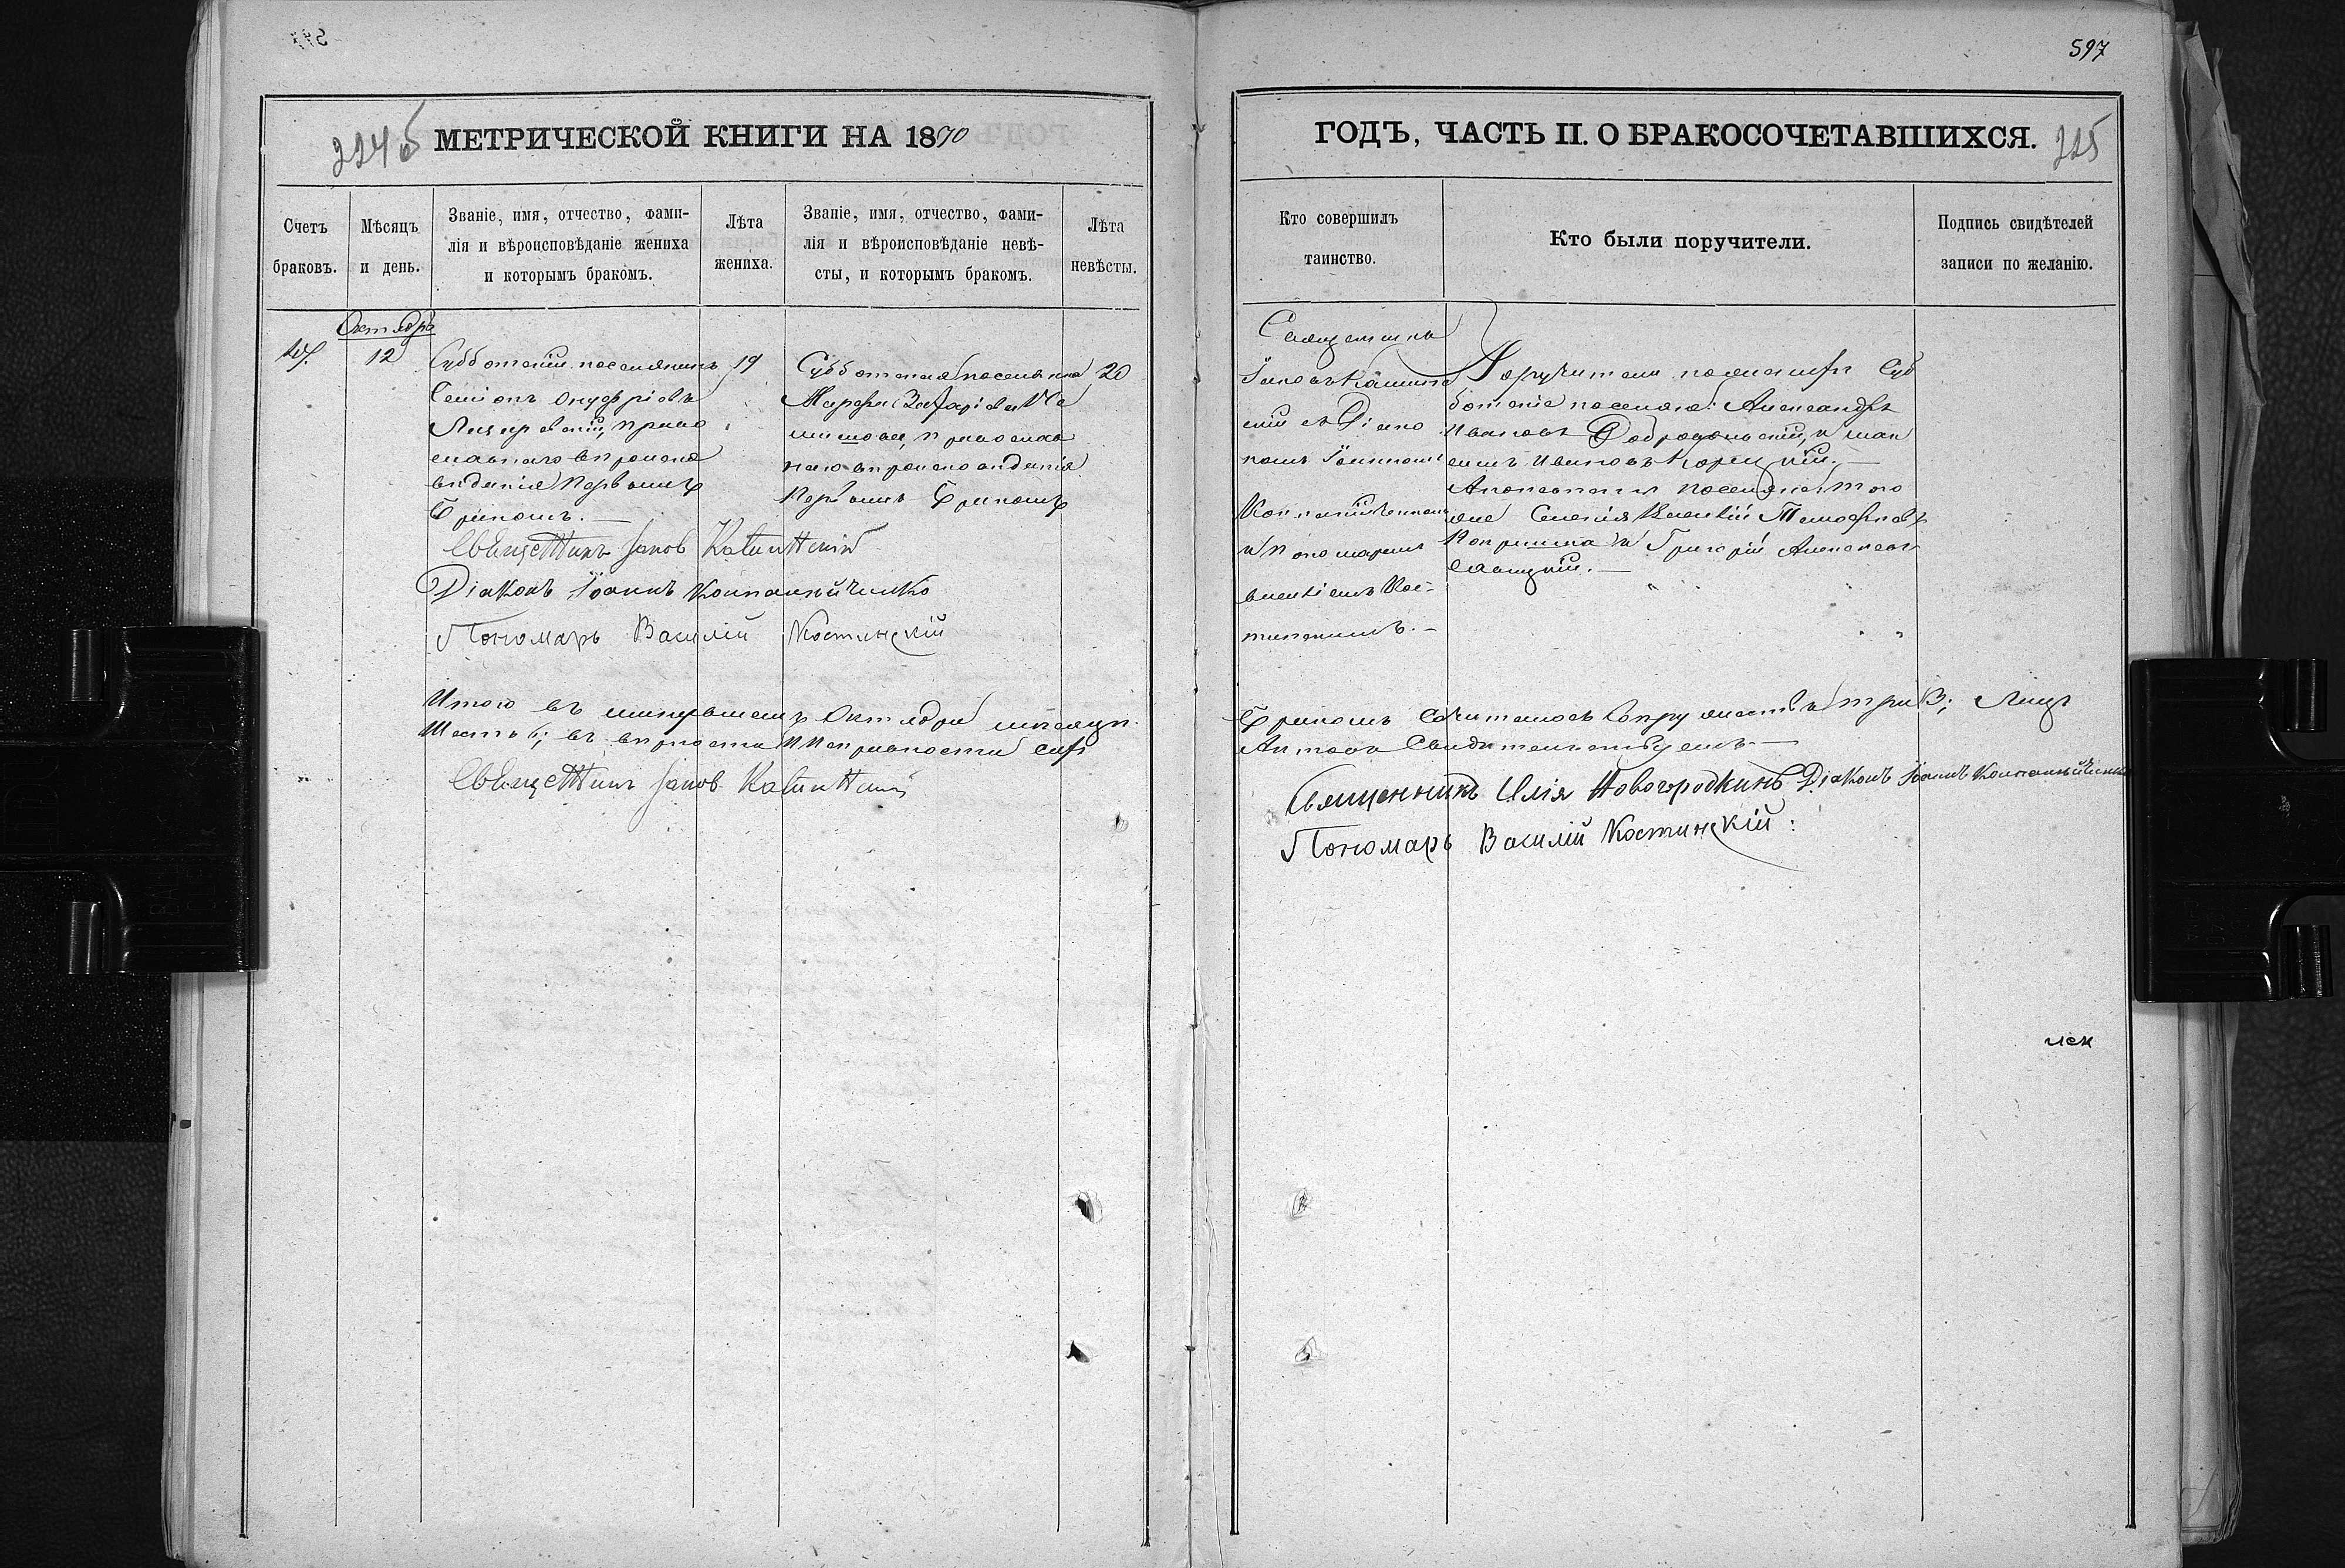 597
224б МЕТРИЧЕСКОЙ КНИГИ НА 1870
Счетъ
браковъ.
Мѣсяцъ
и день.
Званіе, имя, отчество, фами-
лія и вѣроисповѣданіе жениха
и которымъ бракомъ.
Лѣта
жениха.
Званіе, имя, отчество, фами-
лія и вѣроисповѣданіе невѣ-
сты, и которымъ бракомъ.
Лѣта
невѣсты.
Октябрь
12
Субботскій поселянинъ
Семіонъ Онуфріевъ
право
славнаго вѣроиспо
вѣданія первымъ
бракомъ. —
19
Субботская поселянка
Марфа Захаріева
православ
наго вѣроисповѣданія
первымъ бракомъ
20
Священникъ Іаковъ
Діаконъ Іоаннъ Компанѣйченко
Пономарь Василій Костинскій
Итого въ минувшемъ Октябрѣ мѣсяцѣ
Шесть 6; въ вѣрности и исправности сихъ
Священникъ Іаковъ
ГОДЪ, ЧАСТЬ II. О БРАКОСОЧЕТАВШИХСЯ. 225
Кто совершилъ
таинство.
Кто были поручители.
Подпись свидѣтелей
записи по желанію.
Священникъ
Іаковъ
скій съ Діако
номъ Іоанномъ
Компанѣйченкомъ
и Пономаремъ
Василіемъ Кос-
тинскимъ. —
Поручители по женихѣ Суб
ботскіе поселяне: Александръ
Ивановъ и Мак
симъ Ивановъ Корецкій. —
А по невѣстѣ поселяне того
же Селенія Василій Тимофеевъ
и Григорій Алексѣевъ
Савицкій. —
бракомъ сочиталось супружествъ три 3; Лицъ
Актовъ Свидѣтельствуемъ. —
Священникъ Илія Новогродкинъ Діаконъ Іоаннъ Компанѣйченко
Пономарь Василій Костинскій